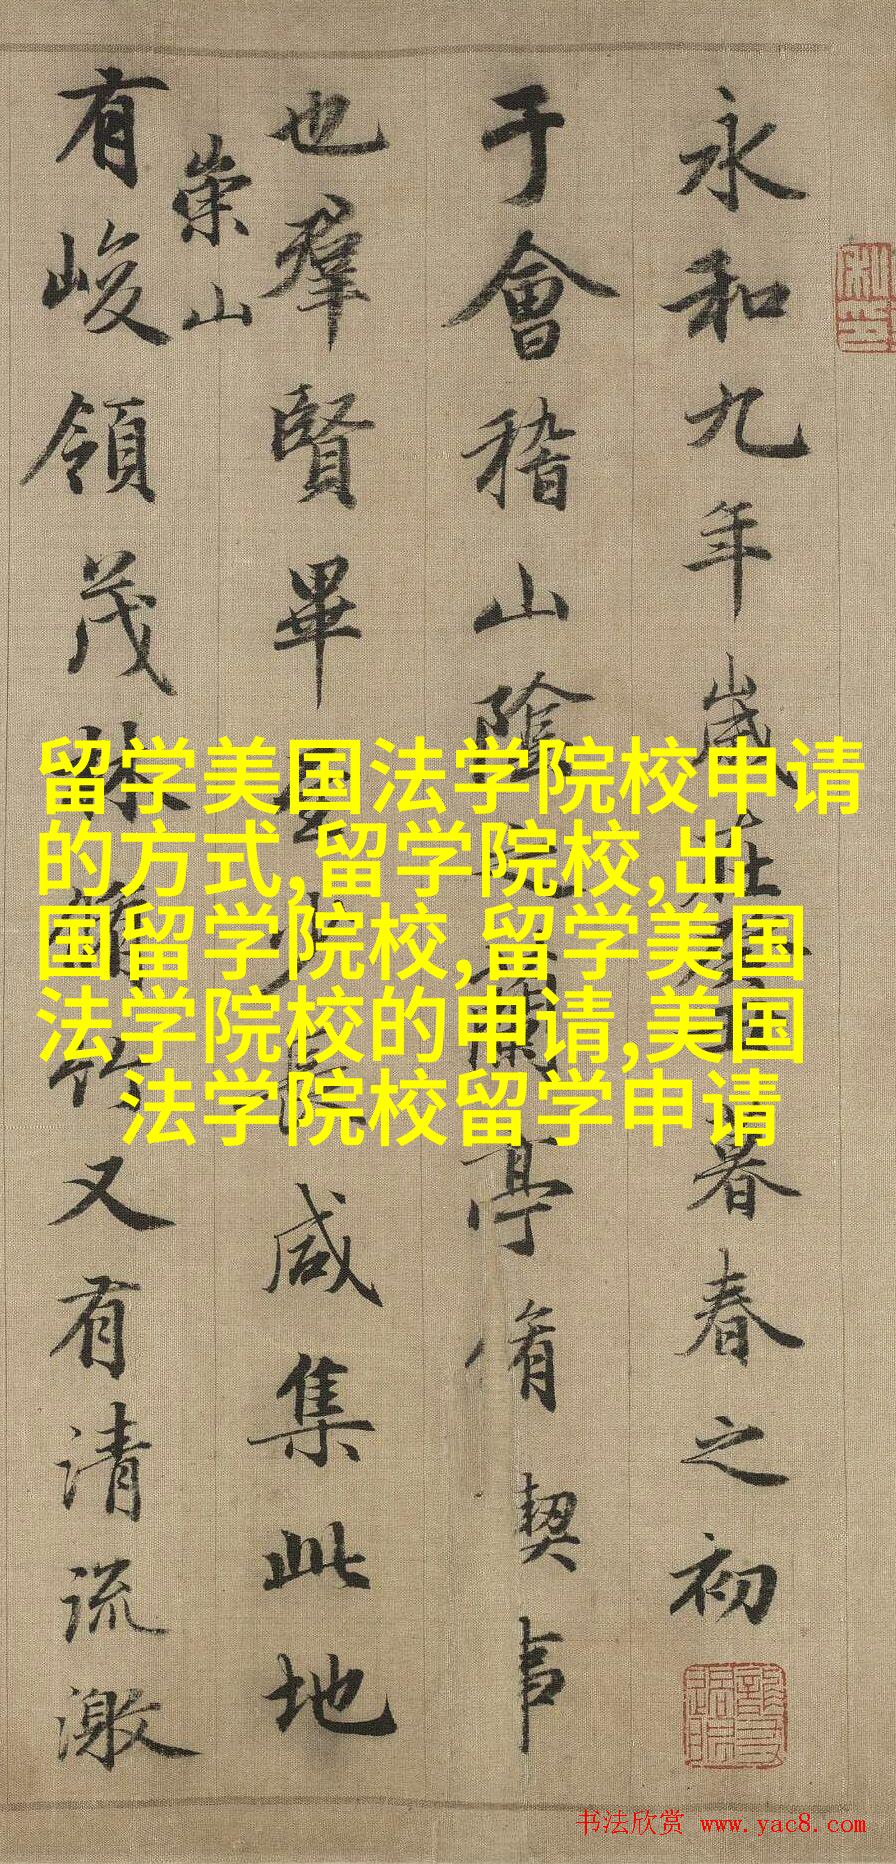 永和九年歲在癸丑暮春之初
于會稽山陰之蘭亭脩契事
也羣賢畢至少長咸集此地
崇山
有峻領茂林脩竹又有清流激
留学美国法学院校申请
的方式,留学院校,出
国留学院校,留学美国
法学院校的申请,美国
法学院校留学申请
书法欣赏 www.yac8.com